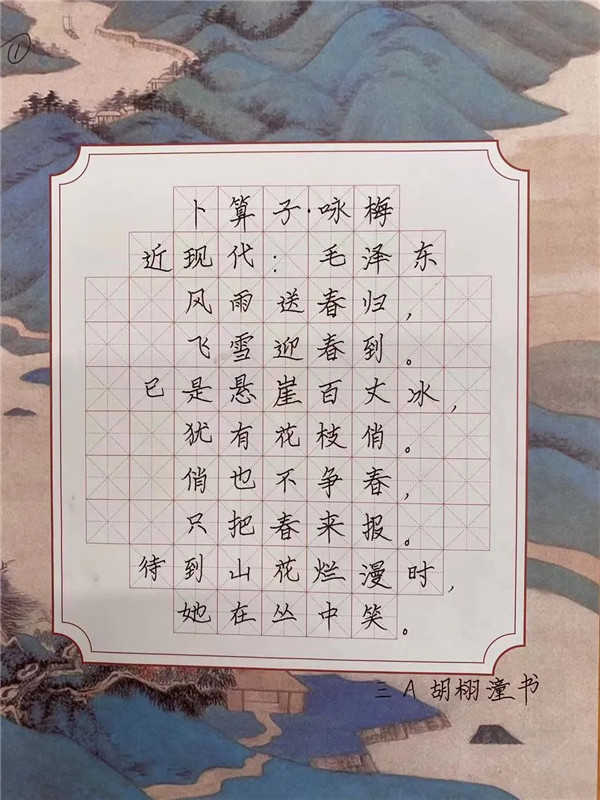 ①
卜算子·咏梅
近现代：毛泽东
风雨送春归，
飞雪迎春到。
已是悬崖百丈冰，
犹有花枝俏。
俏也不争春，
只把春来报。
待到山花烂漫时，
她在丛中笑。
三A胡栩潼书